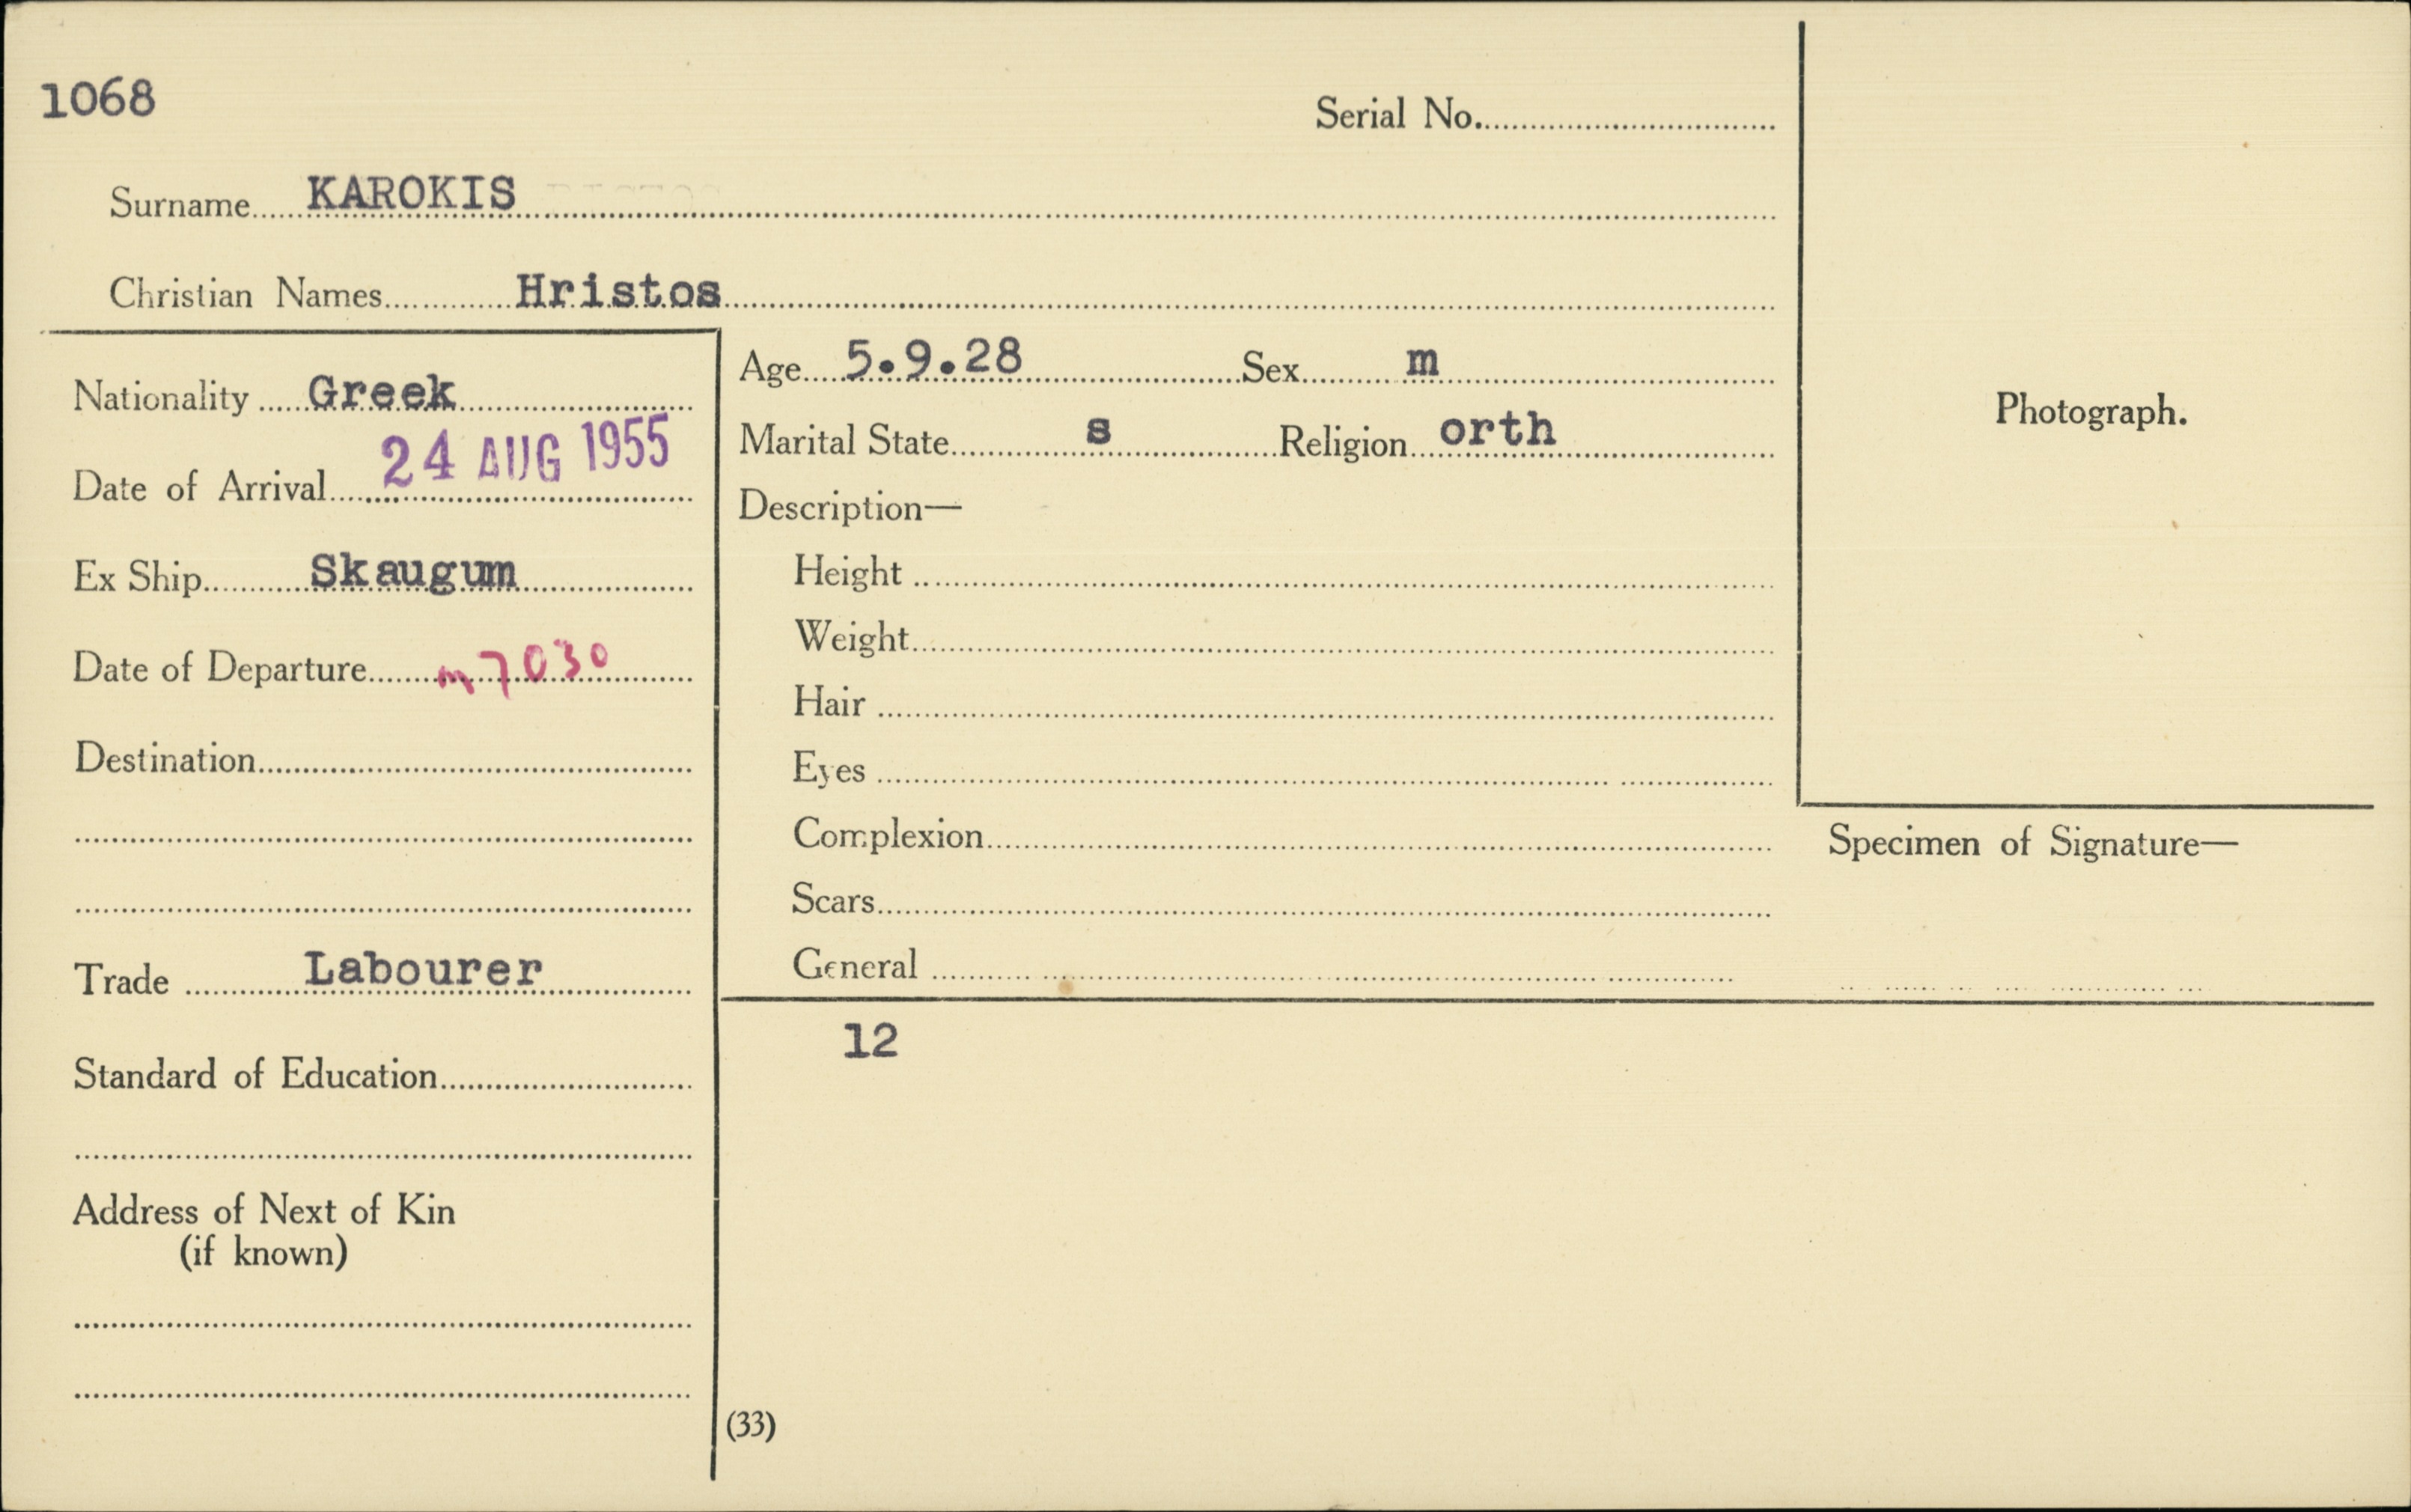 1068
Serial No.
Surname KAROKIS
Christian Names Hristos
Nationality Greek
Date of Arrival 24 AUG 1955
Ex Ship Skaugum
Date of Departure m7030
Destination
Trade Labourer
Standard of Education
Address of Next of Kin
(if known)
Age 5.9.28 Sex m
Marital State s Religion orth
Description—
Height
Weight
Hair
Eyes
Complexion
Scars
General
12
(33)
Photograph.
Specimen of Signature—